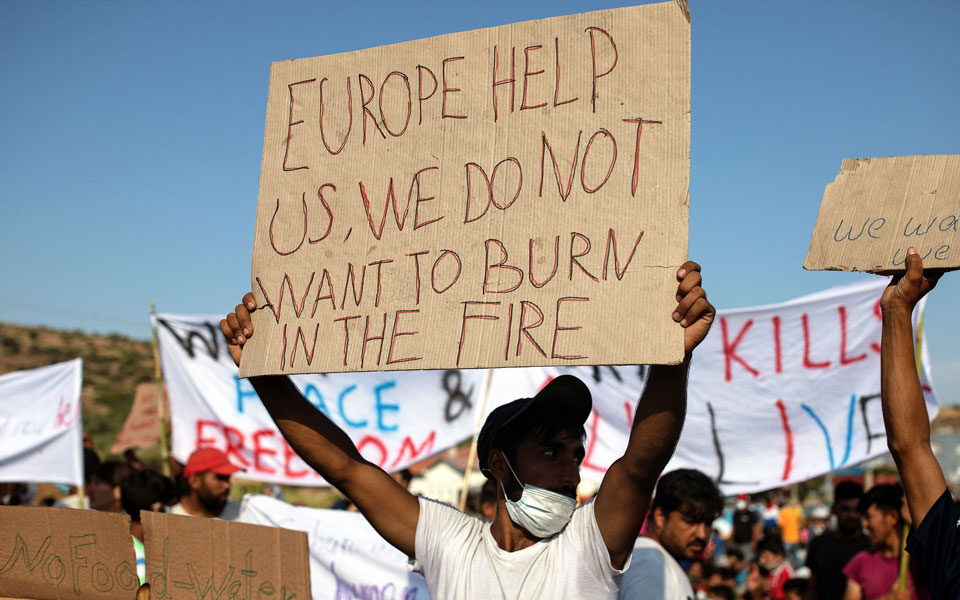 EUROPE HELP
US, WE DO NOT
WANT TO BURN
IN THE FIRE
we
we
PEACE &
FREEDOM
KILLS
LIVE
No Food-Water
human